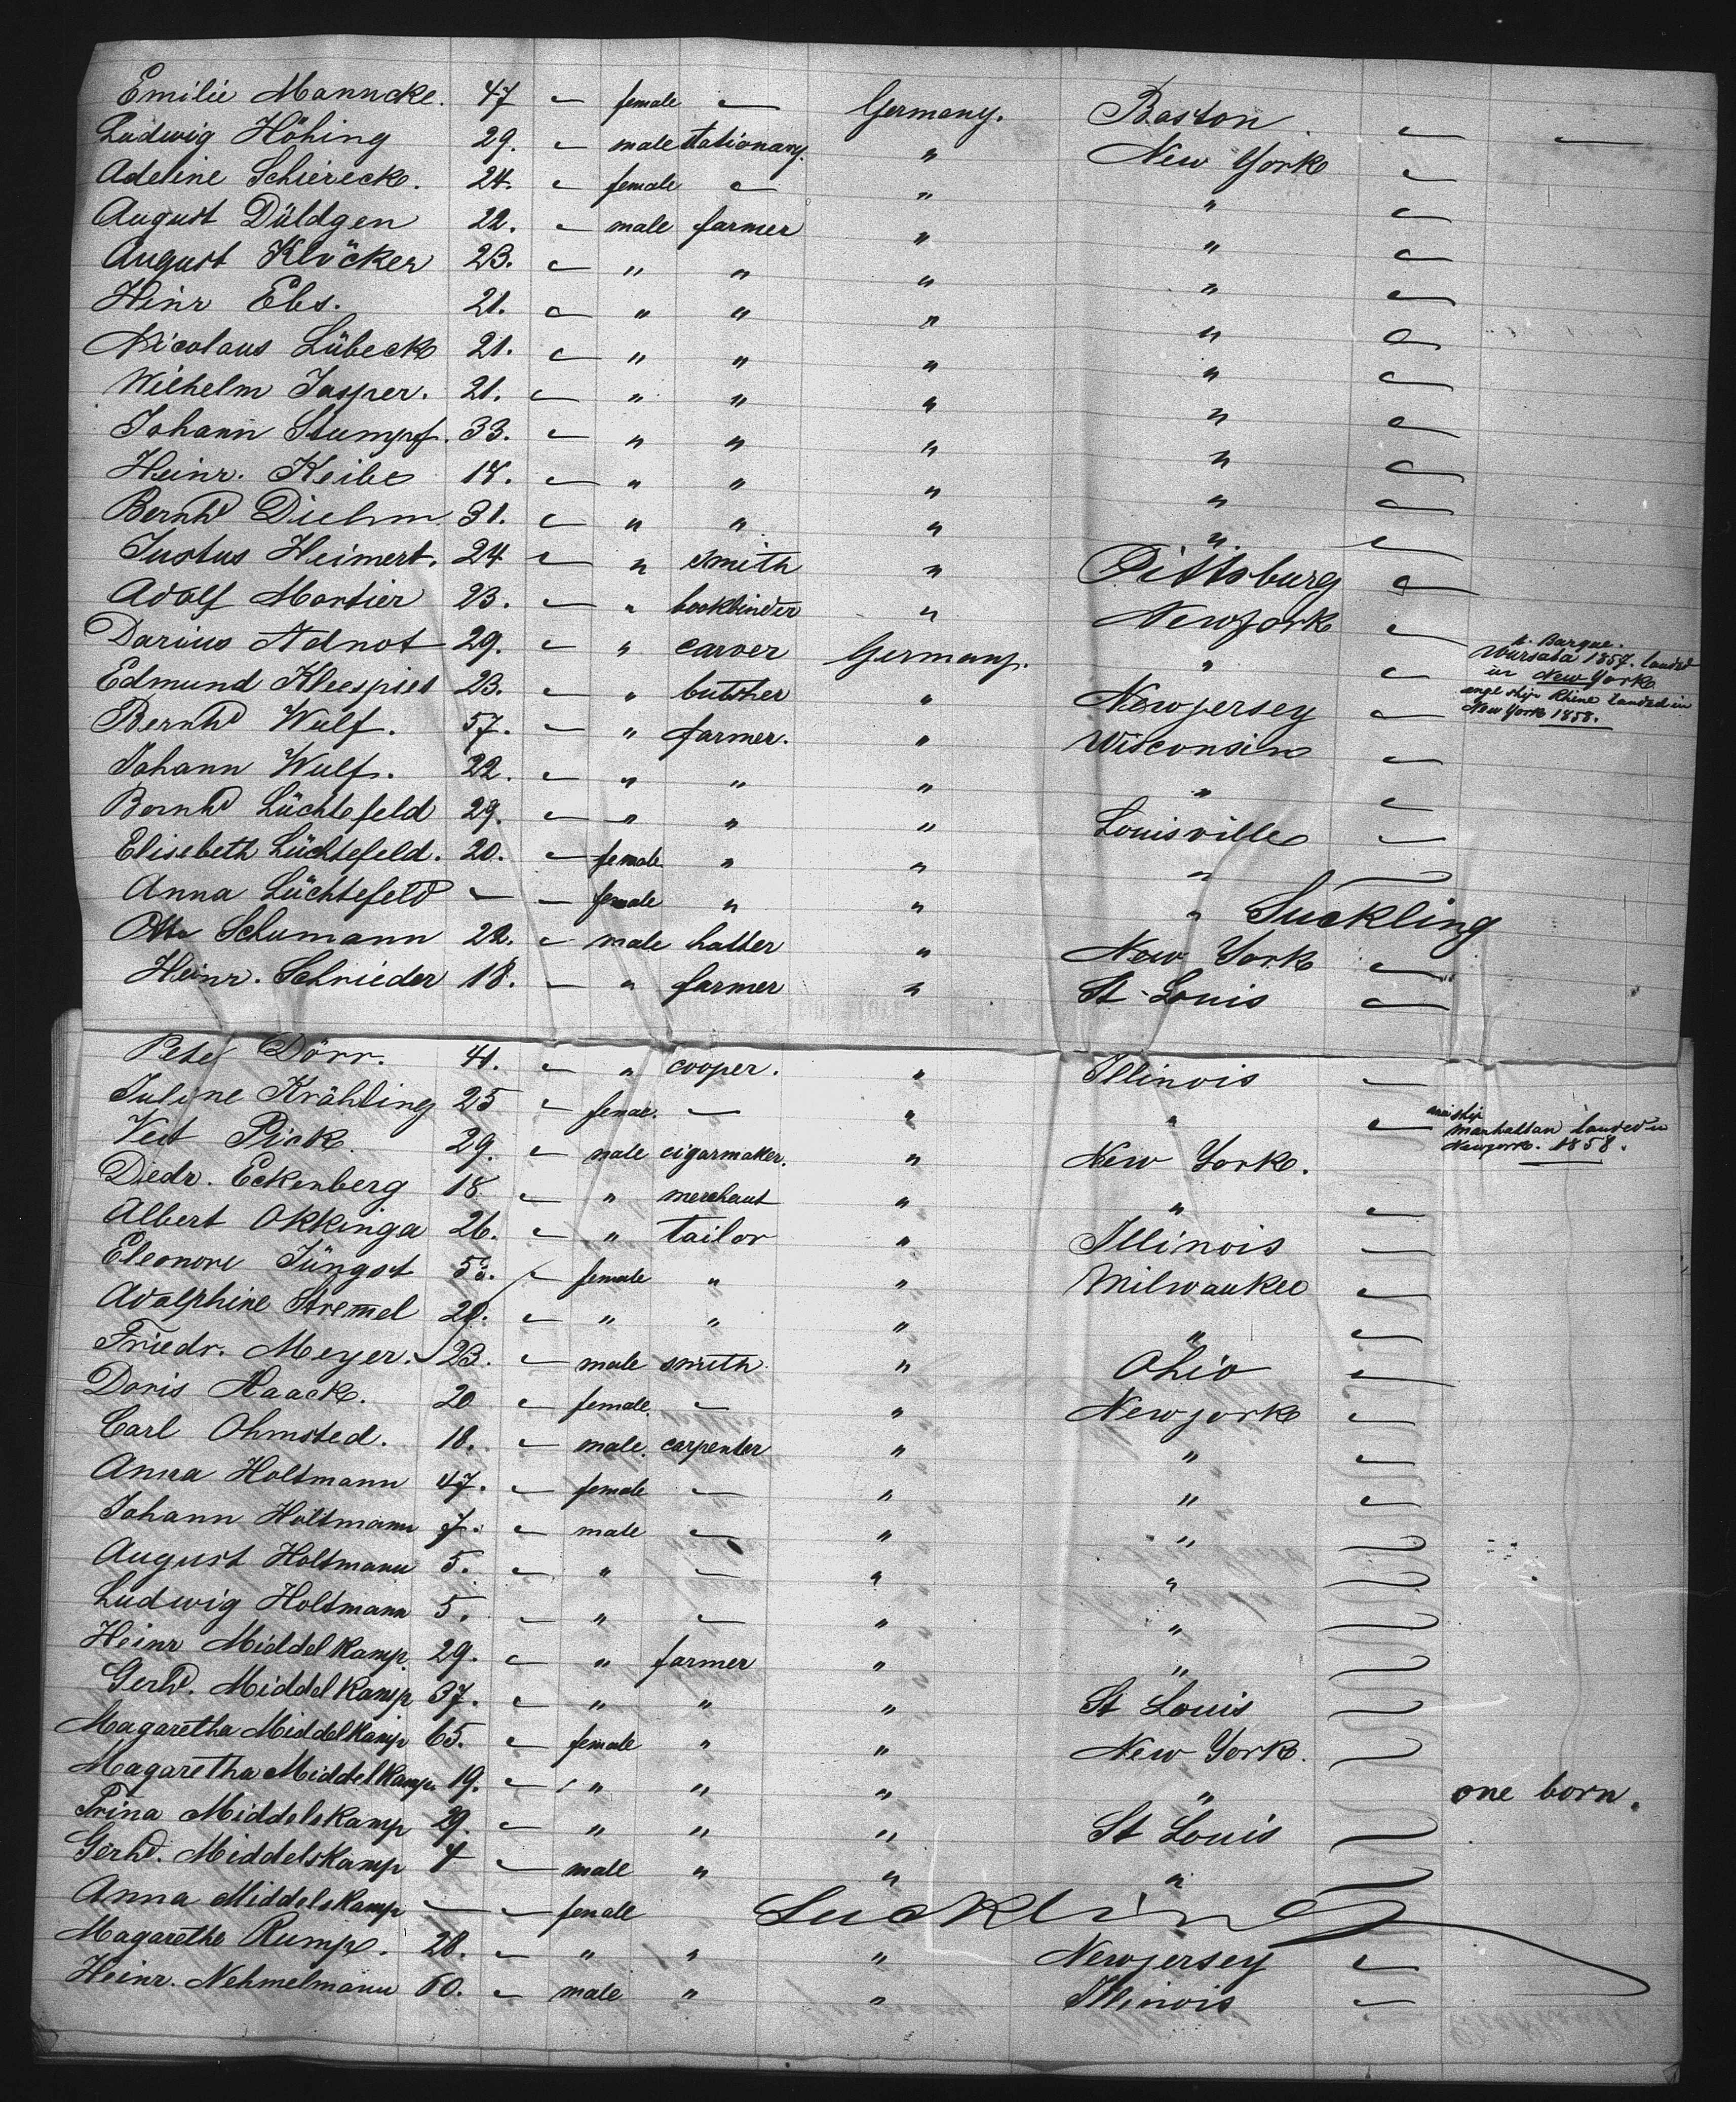 Emilie Manncke. 47 — female — Germany. Boston — —
Ludwig Höhing 29. — male stationary. " New York —
Adeline Schierecke. 24. — female — " " —
August Düldgen 22. — male farmer " " —
August Klöcker 23. — " " " " —
Heinr Ebs. 21. — " " " " —
Nicolaus Lübeck 21. — " " " " —
Wilhelm Jasper. 21. — " " " " —
Johann Stumpf. 33. — " " " " —
Heinr. Keibe 18. — " " " " —
Bernhd Diehm 31. — " " " " —
Justus Heimert. 24 — " smith " Pittsburg —
Adolf Mortier 23. — " bookbinder " Newyork —
Darius Adnot 29. — " carver Germany. " — Barque. 1857. landed in New York
Edmund Kleespies 23. — " butsher " Newjersey — ship Rhine landed in New York 1858.
Bernhd Wulf. 57. — " farmer. " Wisconsin —
Johann Wulf. 22. — " " " " —
Bernhd Lüchtefeld 29. — " " " Louisville —
Elisebeth Lüchtefeld. 20. — female " " " —
Anna Lüchtefeld — — female " " " Suckling
Otto Schumann 22. — male hatter " New York —
Heinr. Schrieder 18. — " farmer " St Louis —
Peter Dörr. 41. — " cooper. " Illinois —
Juline Krähling 25 — femal. — " " —
Veit Pick. 29. — male cigarmaker. " New York. ship Manhattan landed in Newyork. 1858.
Diedr. Eckenberg 18 — " merchant " " —
Albert Okkinga 26. — " tailor " Illinois —
Eleonore Jüngst — female " " Milwaukee —
Adolphine Stremmel 29. — " " " " —
Friedr. Meyer. 23. — male smith " Ohio —
Doris Haack. 20 — female. — " Newyork —
Carl Ohmsted. 18. — male. carpenter " " —
Anna Holtmann 47. — female — " " —
Johann Holtmann 7. — male — " "
August Holtmann 5. — " — " "
Ludwig Holtmann 5. — " — " "
Heinr Middelkamp. 29. — " farmer " "
Gerhd. Middelkamp 37. — " " " St Louis
Magaretha Middelkamp 65. — female " " New York.
Magaretha Middelkamp. 19. — " " " " one born.
Trina Middelskamp 29. — " " " St Louis
Gerhd. Middelskamp — male " " "
Anna Middelskamp — — female Suckling
Magarethe Rump. 28. — " " " Newjersey —
Heinr. Nehmelmann 60. — male " " Illinois —